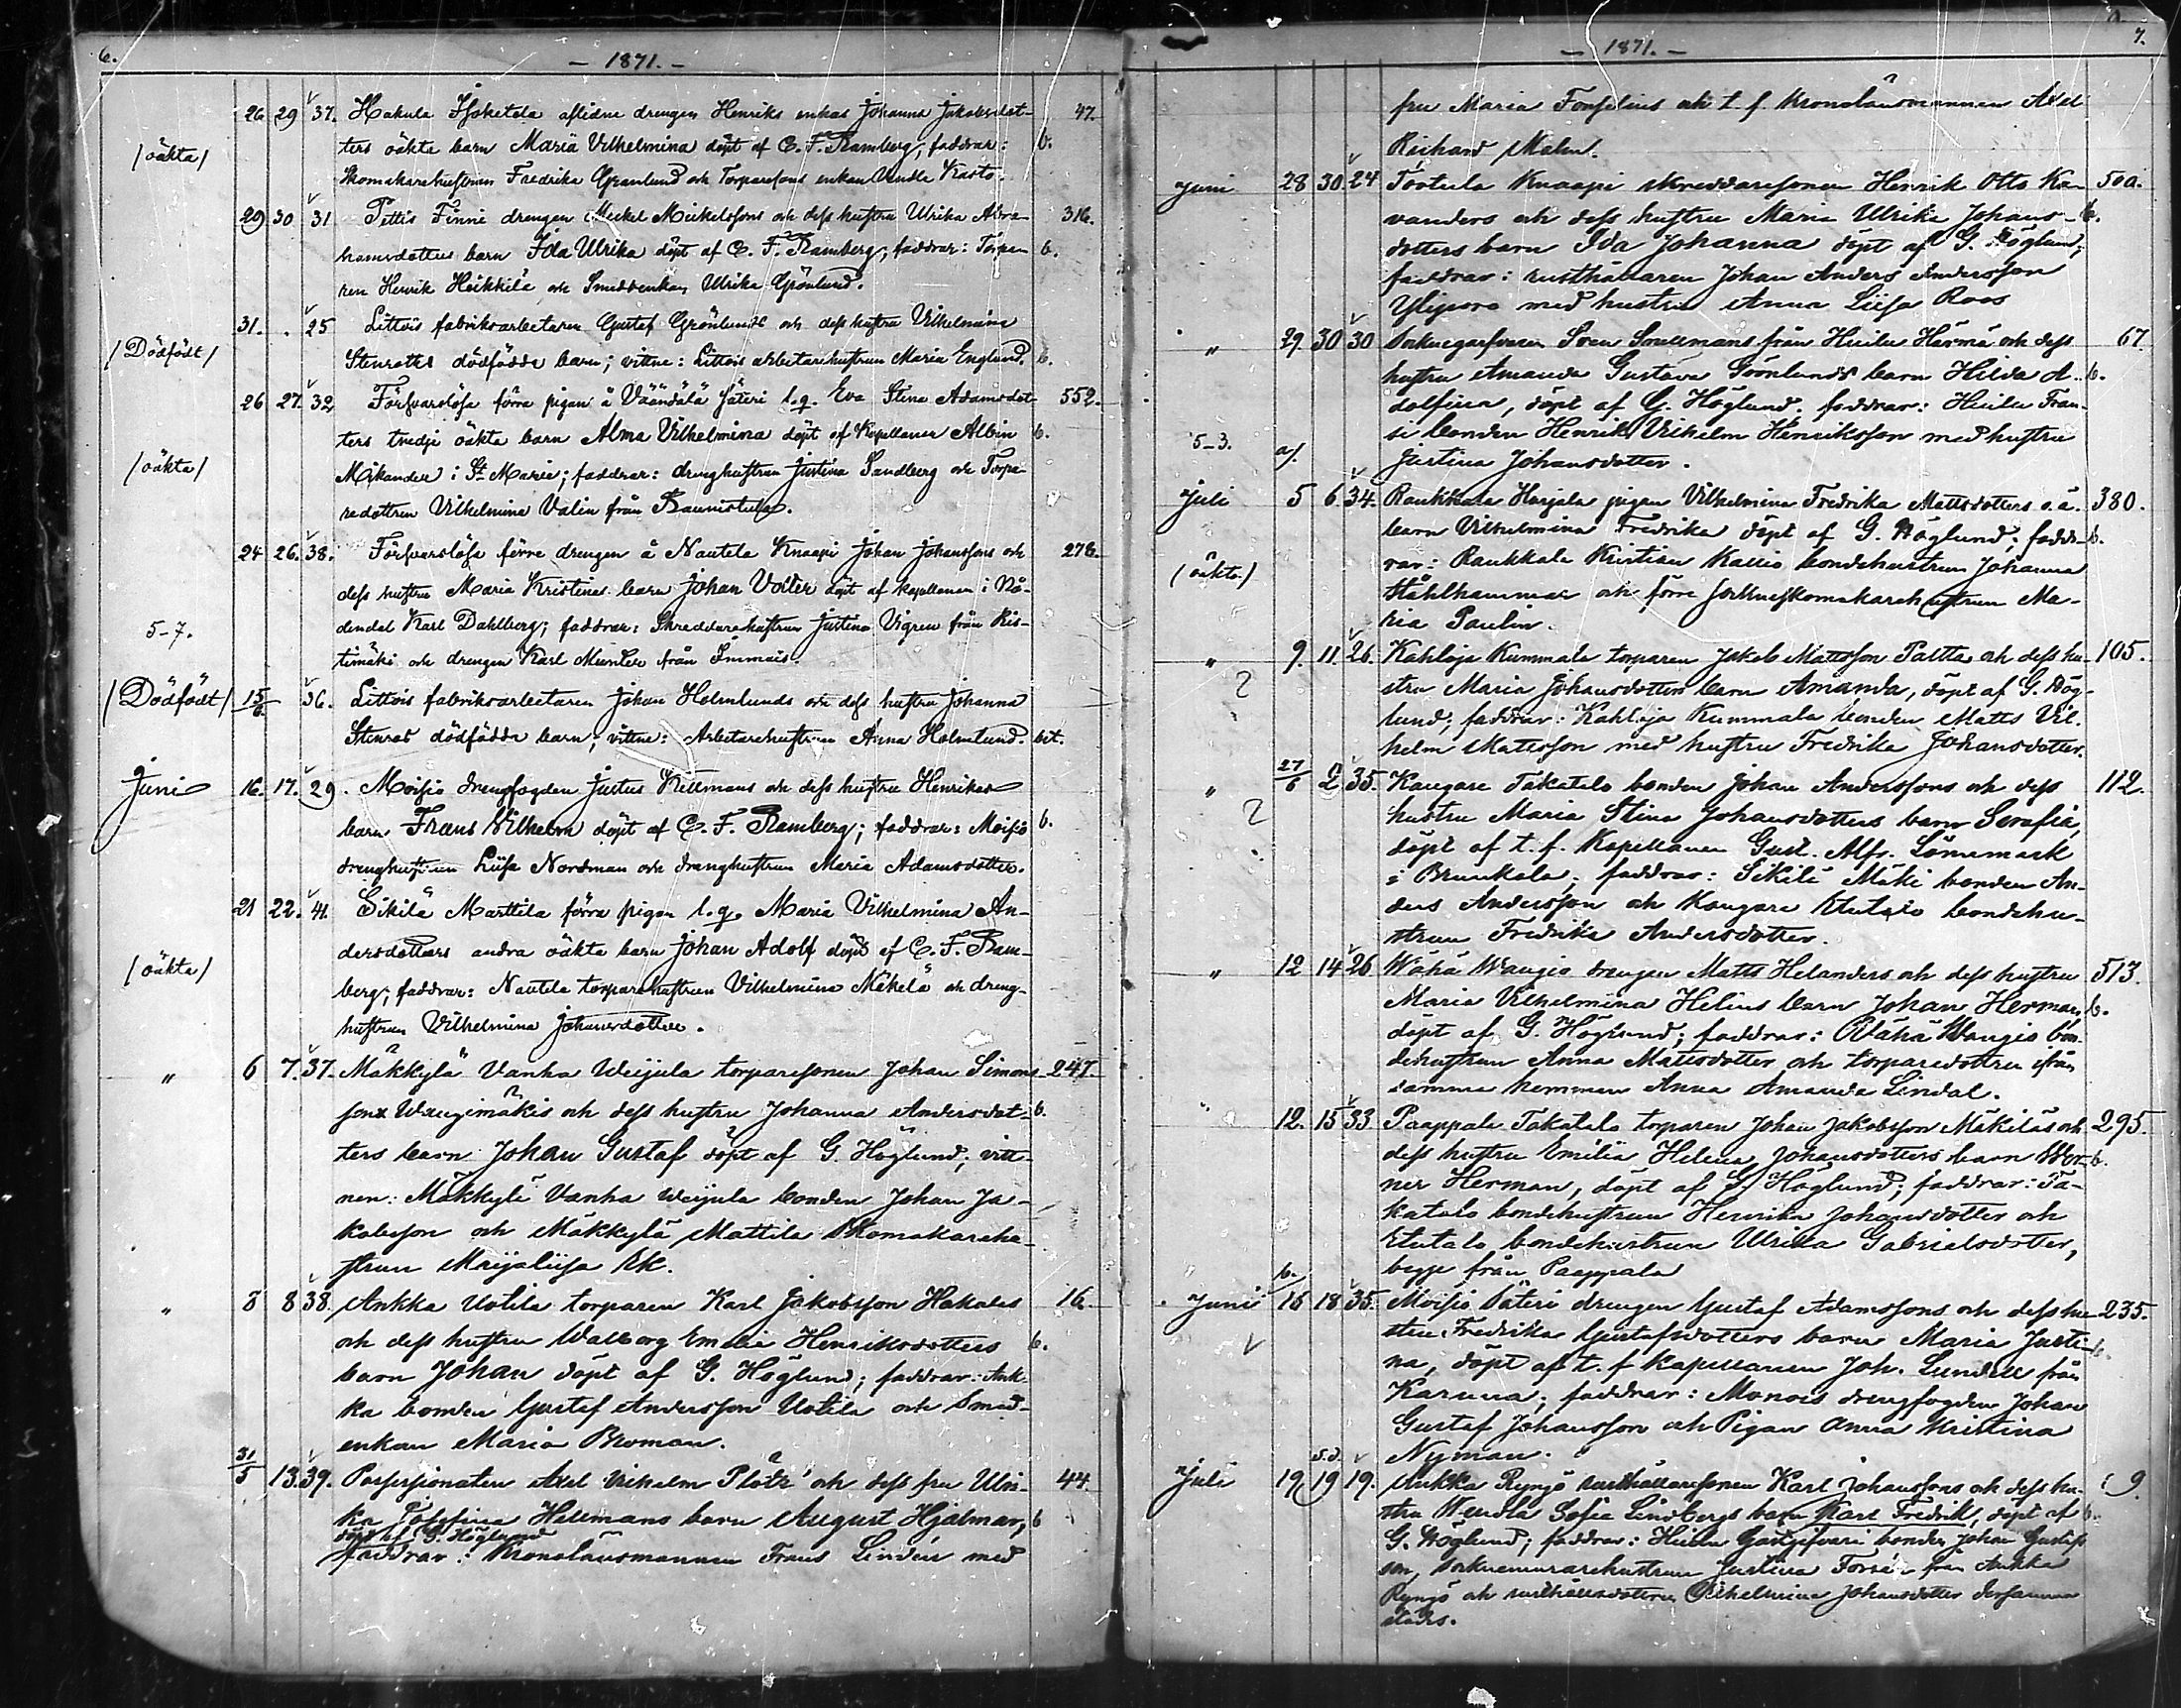 6.
- 1871. -
26 29 37. Hakula Isoketola aflidne drengen Henriks enkas Johanna Jakobsdot- 47.
/oäkta/ ters oäkta barn Maria Vilhelmina döpt af C. F. Ramberg; faddrar: b.
Skomakarehustrun Fredrika Granlund och Torparesons enkan Vendla Kasto.
29 30 31 Pettis Finni drengen Mickel Mickelssons och dess hustru Ulrika Abra- 316.
hamsdotters barn Ida Ulrika döpt af C. F. Ramberg; faddrar: Torpa- b.
ren Henrik Heikkilä och Smedsenkan Ulrika Grönlund.
31. . 25 Littois fabriksarbetaren Gustaf Grönlunds och dess hustru Vilhelmina
/Dödfödt/ Stenroths dödfödda barn; vittne: Littois arbetarehustrun Maria Englund. b.
26 27 32 Försvarslösa förra pigan å Väändälä Säteri l. q. Eva Stina Adamsdot- 552.
ters tredje oäkta barn Alma Vilhelmina döpt af Kapellanen Albin b.
/oäkta/ Mikander i St Marie; faddrar: drenghustrun Justina Sandberg och Torpa-
redottren Vilhelmina Valin från Raunistula.
24 26. 38. Försvarslösa förre drengen å Nautela Knaapi Johan Johanssons och 278.
dess hustru Maria Kristinas barn Johan Valter döpt af kapellanen i Nå-
5-7. dendal Karl Dahlberg; faddrar: Skreddarehustrun Justina Vigren från Ris-
timäki och drengen Karl Munter från Immais.
/Dödfödt/ 15/6 36. Littois fabriksarbetaren Johan Holmlunds och dess hustru Johanna
Stenros dödfödda barn; vittne: Arbetarehustrun Anna Holmlund. bit.
Juni 16. 17. 29. Moisio drengfogden Justus Kellmans och dess hustru Henrikas
barn Frans Vilhelm döpt af C. F. Ramberg; faddrar: Moisio b.
drenghustrun Liisa Nordman och drenghustrun Maria Adamsdotter.
21 22. 41. Sikilä Marttila förra pigan l. q. Maria Vilhelmina An-
dersdotters andra oäkta barn Johan Adolf döpt af C. F. Ram-
/oäkta/ berg; faddrar: Nautela torparehustrun Vilhelmina Mäkelä och dreng-
hustrun Vilhelmina Johansdotter.
" 6 7. 37. Mäkkylä Vanha Weijula torparesonen Johan Simons- 247.
sons Wuorimäkis och dess hustru Johanna Andersdot- b.
ters barn Johan Gustaf döpt af G. Höglund; vitt-
nen: Mäkkylä Vanha Weijula bonden Johan Ja-
kobsson och Mäkkylä Mattila Skomakarehu-
strun Maijaliisa Ek.
" 8 8 38. Ankka Uotila torparen Karl Jakobsson Hakalas 16.
och dess hustru Walborg Emelia Henriksdotters b.
barn Johan döpt af G. Höglund; faddrar: Ank-
ka bonden Gustaf Andersson Uotila och Smed-
enkan Maria Broman.
31/5 13. 39. Possessionaten Axel Vilhelm Platz' och dess fru Ulri- 44
ka Josefina Hellmans barn August Hjalmar, b
döpt af G. Höglund
faddrar: Kronolänsmannen Frans Lindén med
7.
- 1871. -
fru Maria Fonselius och t. f. Kronolänsmannen Axel
Richard Malm.
Juni 28 30. 24 Tortula Knaapi skreddaresonen Henrik Otto Ka- 50a.
vanders och dess hustru Maria Ulrika Johans- b.
dotters barn Ida Johanna döpt af G. Höglund;
faddrar: rusthållaren Johan Anders Andersson
Ylijoro med hustru Anna Liisa Roos
" 29. 30 30 Sockneg svaren Sven Snellmans från Huilu Härmä och dess 67.
hustru Amanda Gustava Grönlunds barn Hilda A- b.
dolfina, döpt af G. Höglund. faddrar: Huilu Fran-
5-3. a). si bonden Henrik Vilhelm Henriksson med hustru
Justina Johansdotter.
Juli 5 6. 34. Raukkala Harjala pigan Vilhelmina Fredrika Mattsdotters o. ä. 380.
barn Vilhelmina Fredrika döpt af G. Höglund; fadd- b.
(oäkta) rar: Raukkala Kristian Kallio bondehustrun Johanna
Ståhlhammar och förre sockneskomakarehustrun Ma-
ria Paulin.
" 9. 11. 26. Kahloja Kummala torparen Jakob Mattsson Paltta och dess hu- 105.
2 stru Maria Johansdotters barn Amanda, döpt af G. Hög-
lund; faddrar: Kahloja Kummala bonden Matts Vil-
helm Mattsson med hustru Fredrika Johansdotter.
" 27/6 2 35. Kangare Takatalo bonden Johan Anderssons och dess 112.
2 hustru Maria Stina Johansdotters barn Serafia,
döpt af t. f. Kapellanen Gust. Alfr. Lönnmark
i Brunkala; faddrar: Sikilä Mäki bonden An-
ders Andersson och Kangare Etutalo bondehu-
strun Fredrika Andersdotter.
" 12 14 26 Wähä Wangio drengen Matts Helanders och dess hustru 513.
Maria Vilhelmina Helins barn Johan Herman, b.
döpt af G. Höglund; faddrar: Wähä Wangio bon-
dehustrun Anna Mattsdotter och torparedottren från
samma hemman Anna Amanda Lindal.
12. 15 33 Paappala Takatalo torparen Johan Jakobsson Mäkiläs och 295.
dess hustru Emilia Helena Johansdotters barn Wer- b.
ner Herman, döpt af G. Höglund; faddrar: Ta-
katalo bondehustrun Henrika Johansdotter och
Etutalo bondehustrun Ulrika Gabrielsdotter,
begge från Paappala
Juni 16 18 35. Moisio Säteri drengen Gustaf Adamssons och dess hu- 235.
stru Fredrika Gustafsdotters barn Maria Justi- b.
na, döpt af t. f. Kapellanen Joh. Lundell från
Karuna; faddrar: Monois drengfogden Johan
Gustaf Johansson och Pigan Anna Kristina
Nyman.
Juli 19 19 19. Ankka Rynjö rusthållaresonen Karl Johanssons och dess hu- 9.
stru Wendla Sofia Lindbergs barn Karl Fredrik, döpt af b.
G. Höglund; faddrar: Huilu Gästgifvari bonden Johan Gustafs-
son, socknemurarehustrun Justina Forsén från Ankka
Rynjö och rusthållaredottren Vilhelmina Johansdotter dersamma
städes.